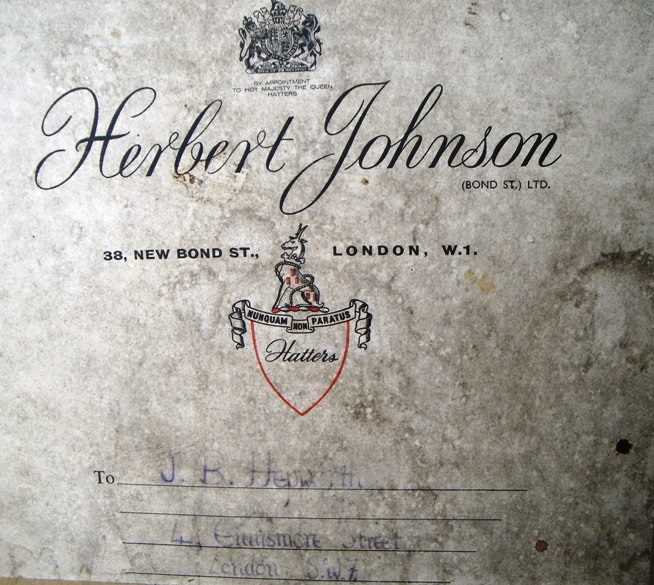 BY APPOINTMENT
TO HER MAJESTY THE QUEEN,
HATTERS
Herbert Johnson
(BOND ST.) LTD.
38, NEW BOND ST., LONDON, W.1.
NUNQUAM NON PARATUS
Hatters
To J. R. Hepworth
4, Ennismore Street
London S.W.7